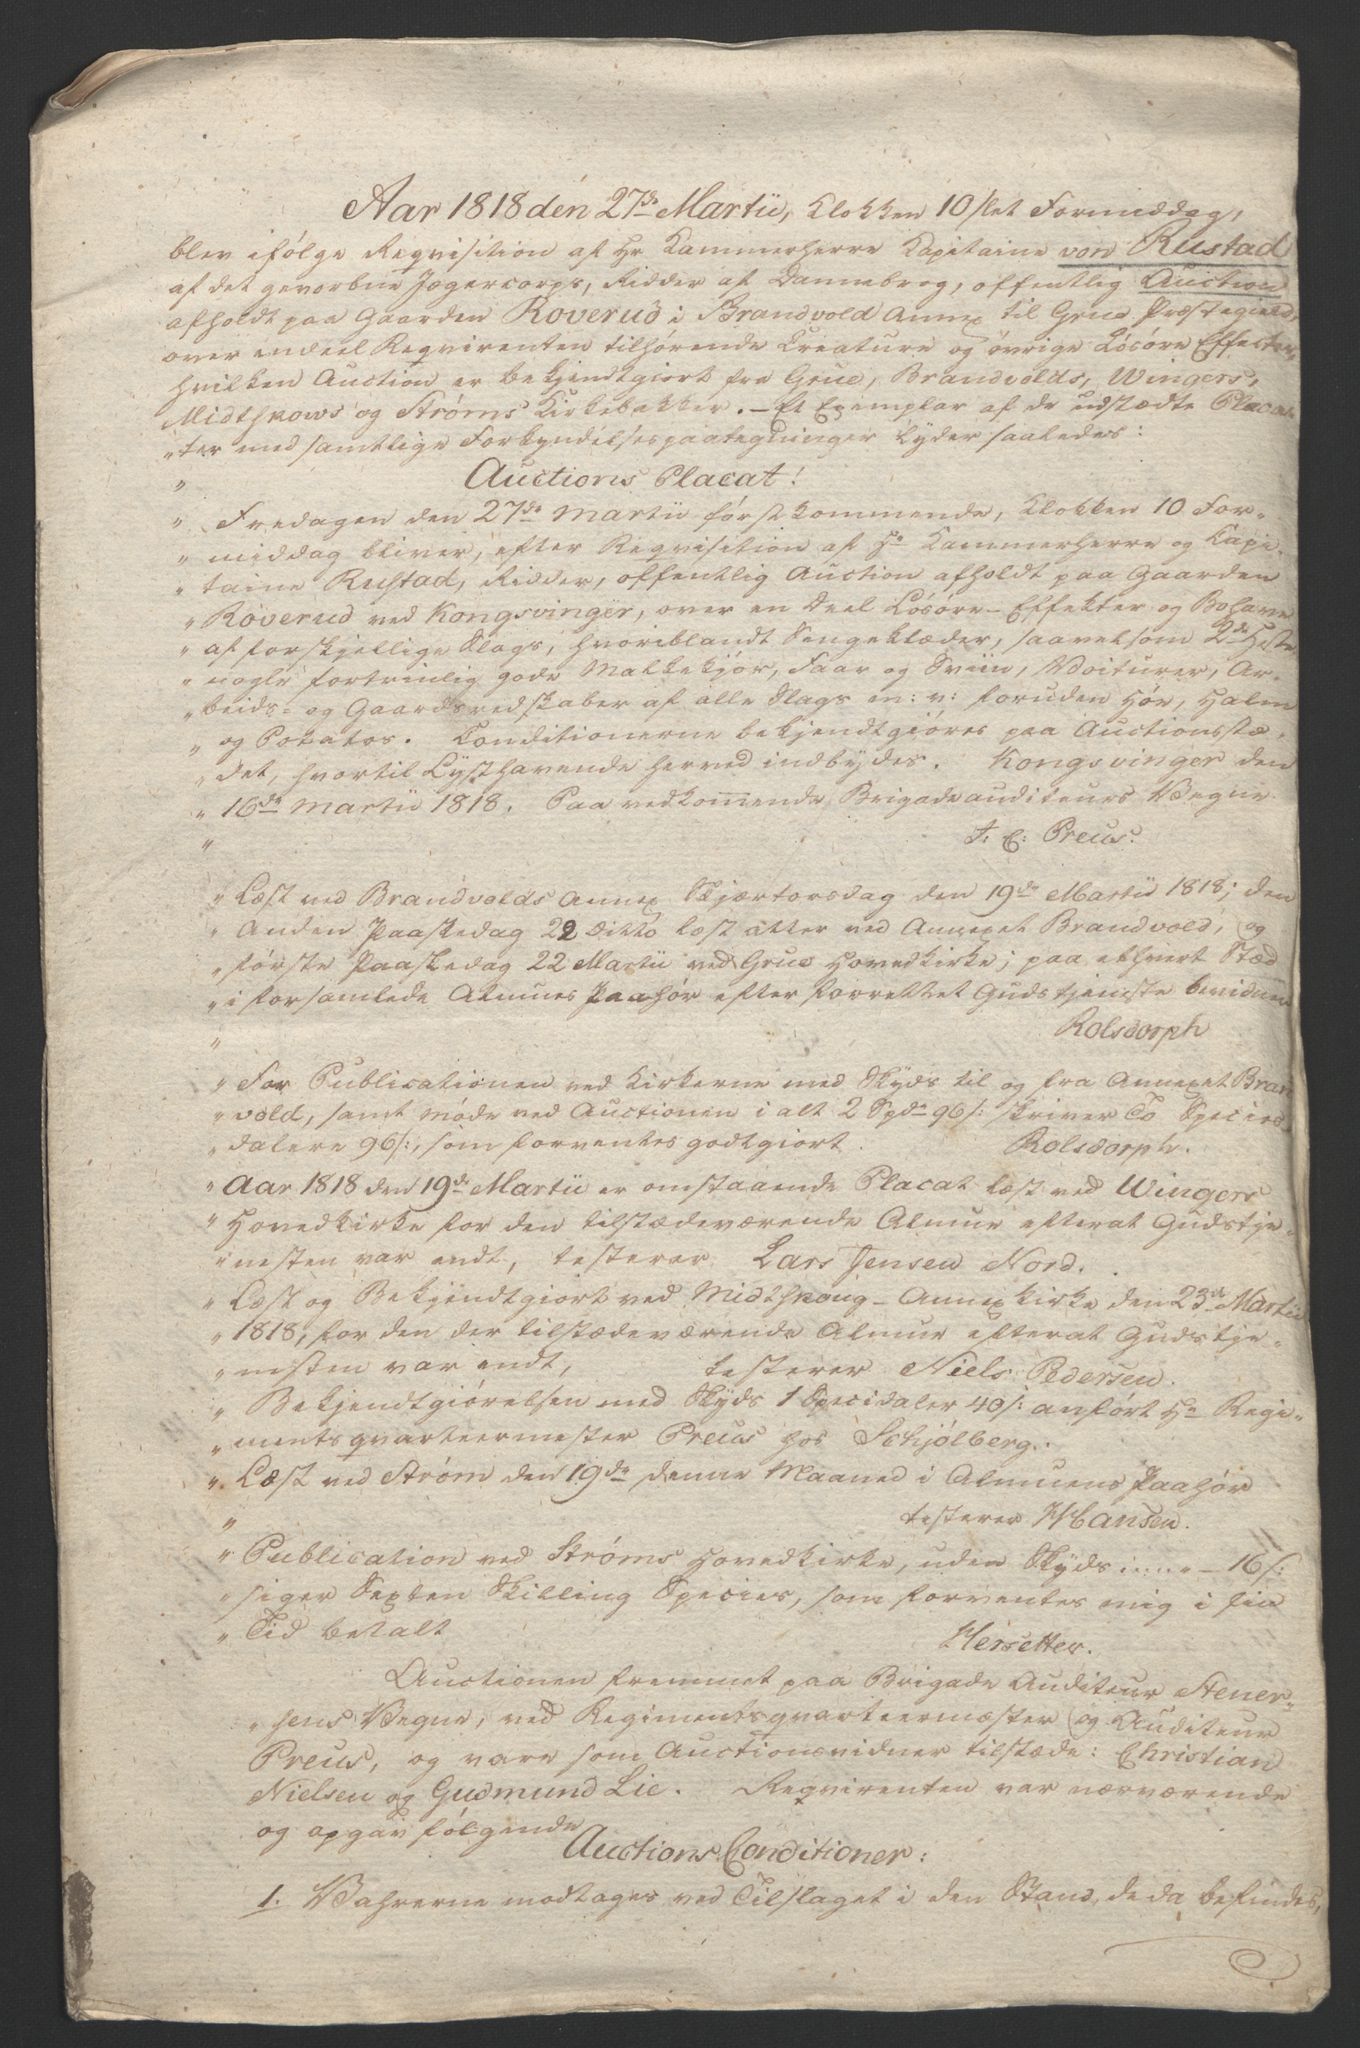 Aar 1818 den 27de Martii, Klokken 10 slet Formiddag,
blev ifölge Reqvisition af Hr Kammerherre Kapitaine von Rustad
af det gevorbne Jægercorps, Ridder af Dannebrog, offentlig Auction
afholdt paa Gaarden Roverud i Brandvold Annex til Grue Præstegield,
over endeel Reqvirenten tilhörende Creature og övrige Lösöre Effecter,
hvilken Auction er bekjendtgiort fra Grue, Brandvolds, Wingers,
Midtskows og Ströms Kirkebakker. – Et Exemplar af de udstædte Placa-
"ter med samtlige Forkyndelsespaategninger lyder saaledes:
" Auctions Placat!
" Fredagen den 27de Martii förstkommende, Klokken 10 For-
" middag bliver, efter Reqvisition af Hr Kammerherre og Kapi-
" taine Rustad, Ridder, offentlig Auction afholdt paa Gaarden
" Röverud ved Kongsvinger, over en Deel Lösöre-Effekter og Bohave
" af forskjellige Slags, hvoriblandt Sengeklæder, saavelsom 2de Heste
" nogle fortrinlig gode Malkekjör, Faar og Sviin, Voiturer, Ar-
" beids- og Gaardsredskaber af alle Slags m: v: foruden Höe, Halm
" og Potatos. Conditionerne bekjendtgiöres paa Auctionsstæ-
" det, hvortil Lysthavende herved indbydes. Kongsvinger den
" 16de Martii 1818. Paa vedkommende Brigadeauditeurs Vegne
" J: C: Preus.
" Læst ved Brandvolds Annex Skjærtorsdag den 19de Martii 1818; den
" Anden Paaskedag 22 ditto læst atter ved Annexet Brandvold, og
" förste Paaskedag 22 Martii ved Grue Hovedkirke; paa ethvert Stæd
" i forsamlede Almues Paahör efter forrettet Gudstjeneste bevidner
" Rolsdorph
" For Publicationen ved Kirkerne med Skyds til og fra Annexet Brand
" vold, samt Möde ved Auctionen i alt 2 Spd. 96 s: skriver To Species
" dalere 96 s:, som forventes godtgiort. Rolsdorph.
" Aar 1818 den 19de Martii er omstaaende Placat læst ved Wingers
" Hovedkirke for den tilstædeværende Almue efterat Gudstje-
" nesten var endt, testerer Lars Jensen Nord.
" Læst og Bekjendtgiort ved Midtskoug-Annexkirke den 23de Martii
" 1818, for den der tilstædeværende Almue efterat Gudstje-
" nesten var endt, testerer Niels Pedersen.
" Bekjendtgiörelsen med Skyds 1 Specidaler 40 s: anfört Hr Regi-
" mentsqvarteermester Preus hos Schjölberg.
" Læst ved Ström den 19de denne Maaned i Almuens Paahör
" testerer Hansen.
" Publication ved Ströms Hovedkirke, uden Skyds – 16 s:
" siger Sexten Skilling Species, som forventes mig i sin
" Tid betalt Hersetter.
Auctionen fremmet paa Brigade Auditeur Stener-
"sens Vegne, ved Regimentsqvarteermester og Auditeur
Preus, og vare som Auctionsvidner tilstæde: Christian
Nielsen og Gudmund Lie. Reqvirenten var nærværende
og opgav fölgende
Auctions Conditioner:
1. Vahrerne modtages ved Tilslaget i den Stand, de da befindes,